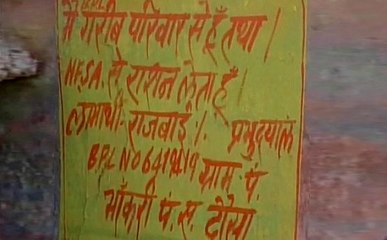 BPL
मैं गरीब परिवार से हूँ तथा |
N.F.S.A. से राशन लेता हूँ |
लाभार्थी- राजबाई |. प्रभुदयाल
B.P.L NO ग्राम पं.
भाँकरी पं. स. दौसा